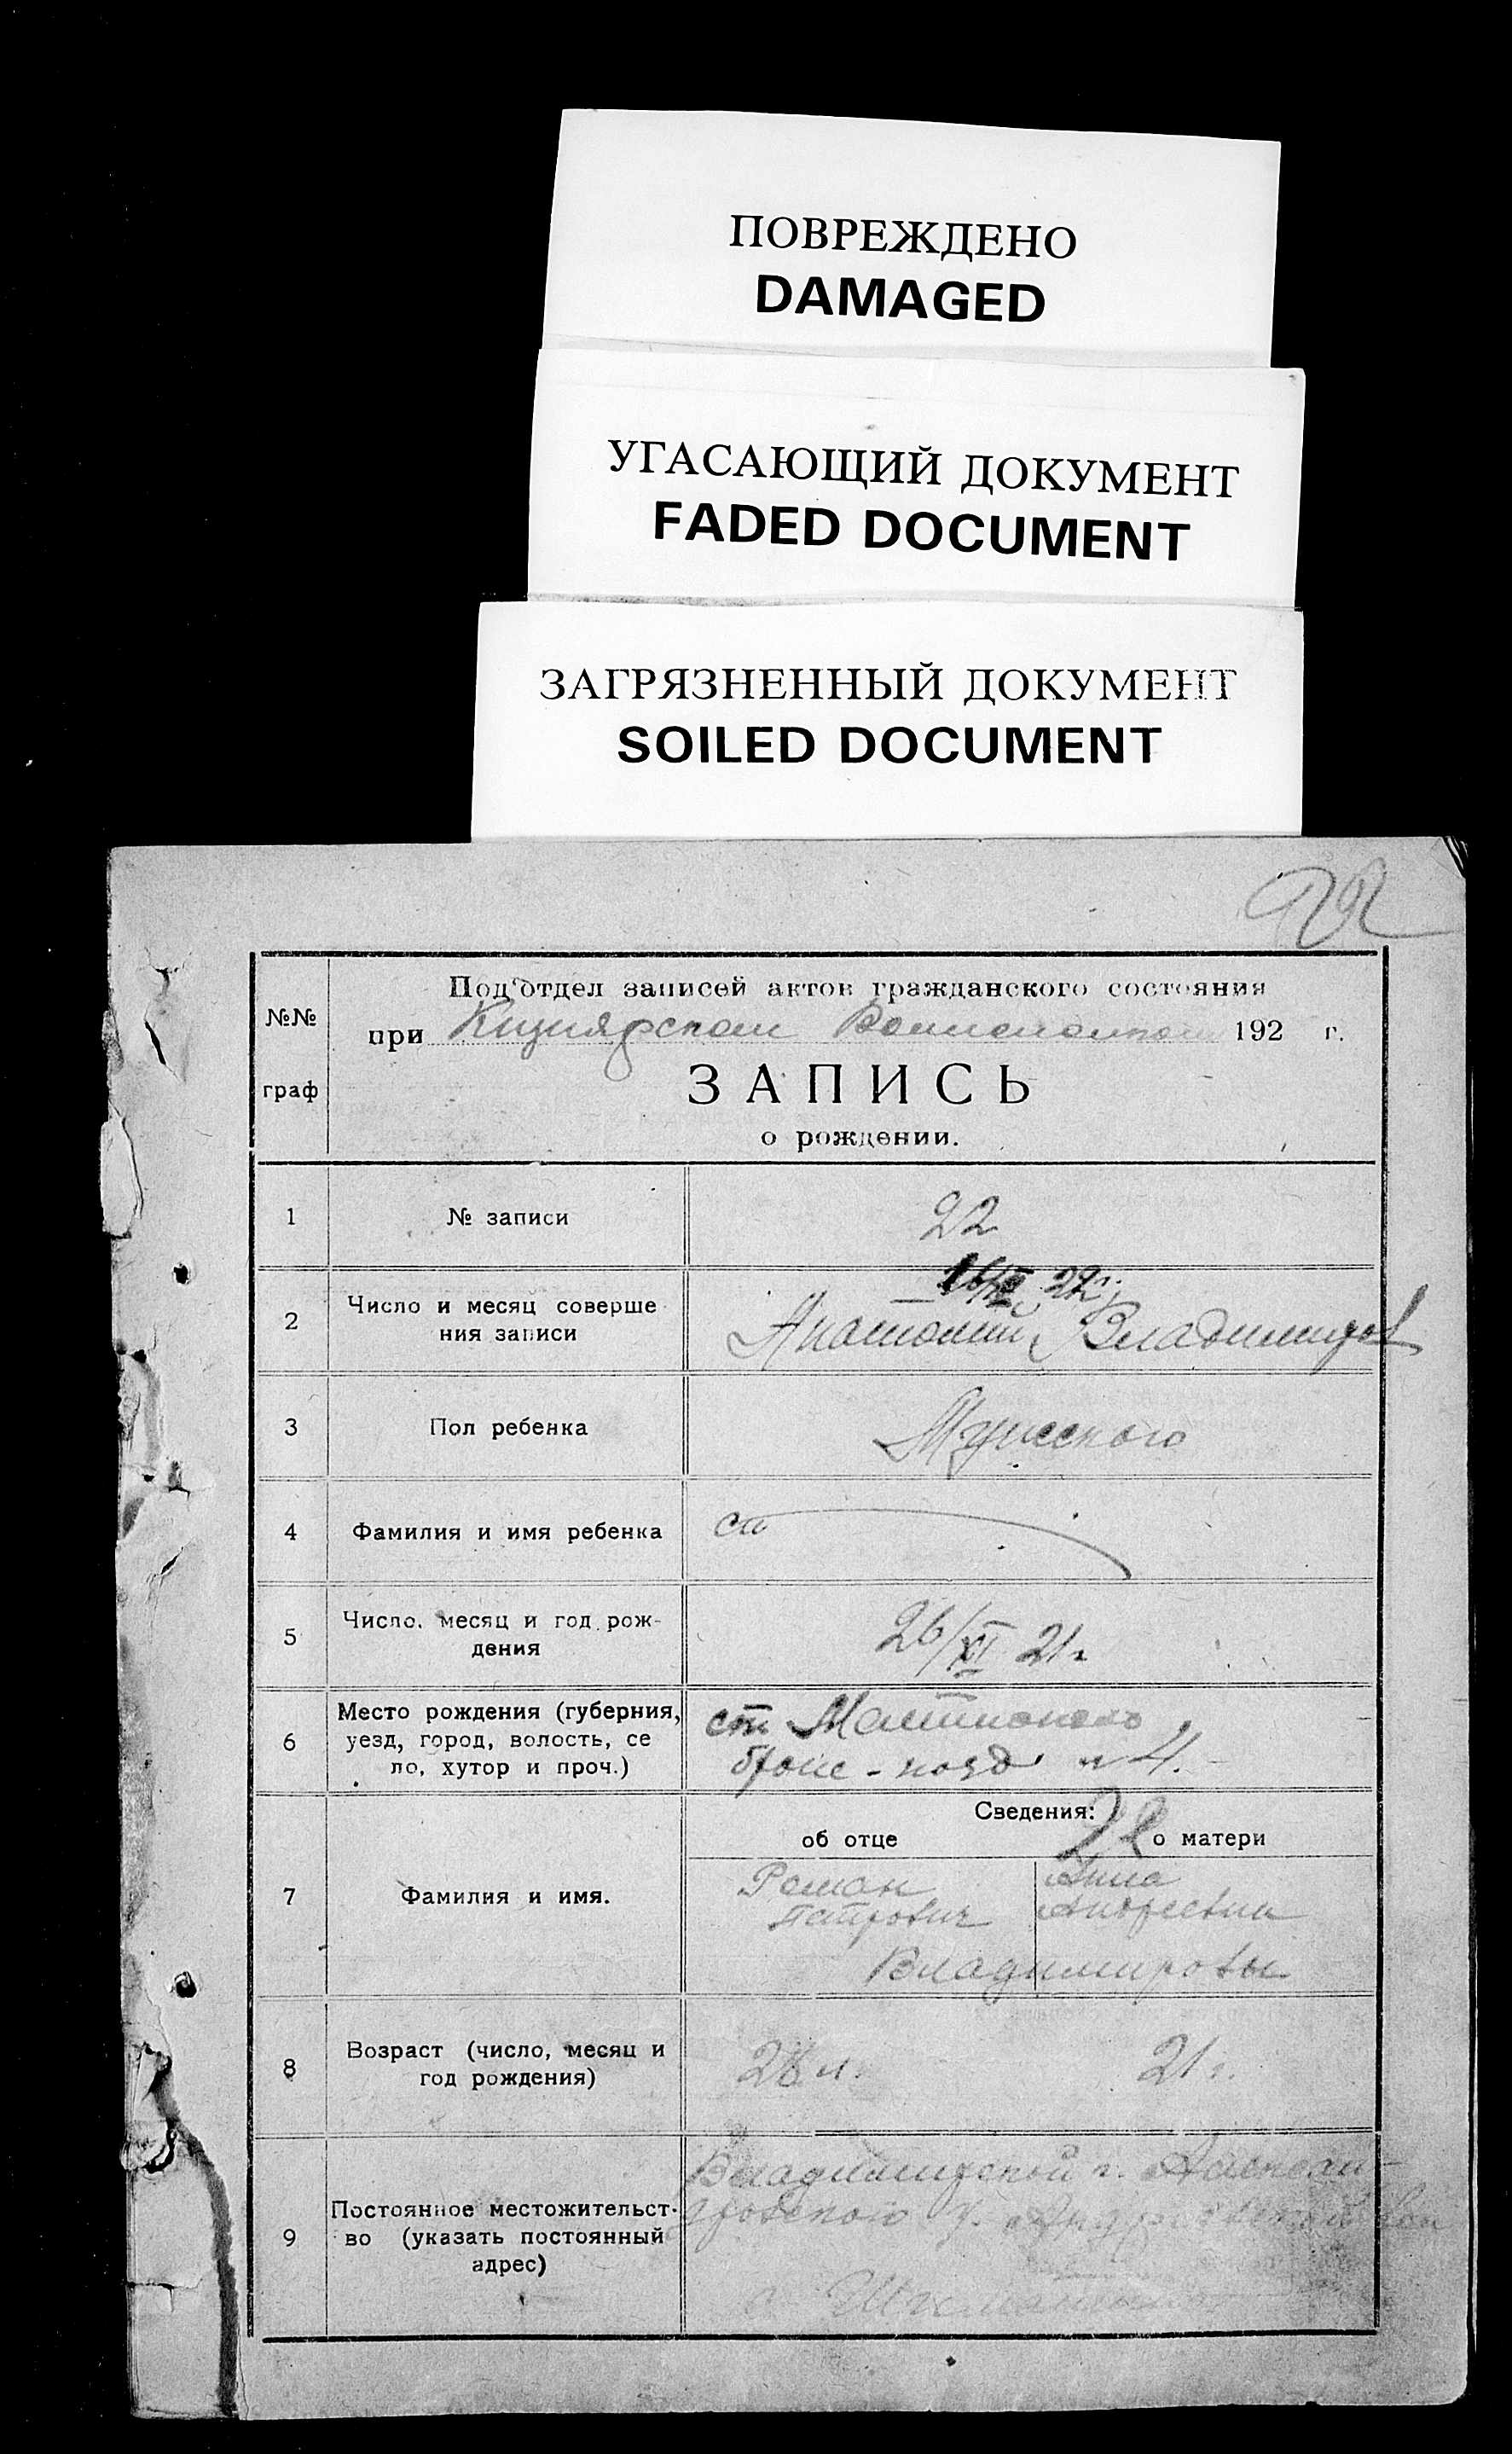 ПОВРЕЖДЕНО
DAMAGED
УГАСАЮЩИЙ ДОКУМЕНТ
FADED DOCUMENT
ЗАГРЯЗНЕННЫЙ ДОКУМЕНТ
SOILED DOCUMENT
№№
граф
Подотдел записей актов гражданского состояния
при 192 г.
ЗАПИСЬ
о рождении.
1
№ записи
22
2
Число и месяц соверше
ния записи
22г.
Анатолий Владимиров
3
Пол ребенка
Мужского
4
Фамилия и имя ребенка
5
Число, месяц и год рож-
дения
26/XI 21г
6
Место рождения (губерния,
уезд, город, волость, се
ло, хутор и проч.)
ст.
броне-поезд 4.
Сведения:
об отце
о матери
7
Фамилия и имя.
Роман
Петрович
Анна
Андреевна
Владимировы
8
Возраст (число, месяц и
год рождения)
28 л.
21 г.
9
Постоянное местожительст-
во (указать постоянный
адрес)
Владимирской г. Алексан-
дровского у.
с.